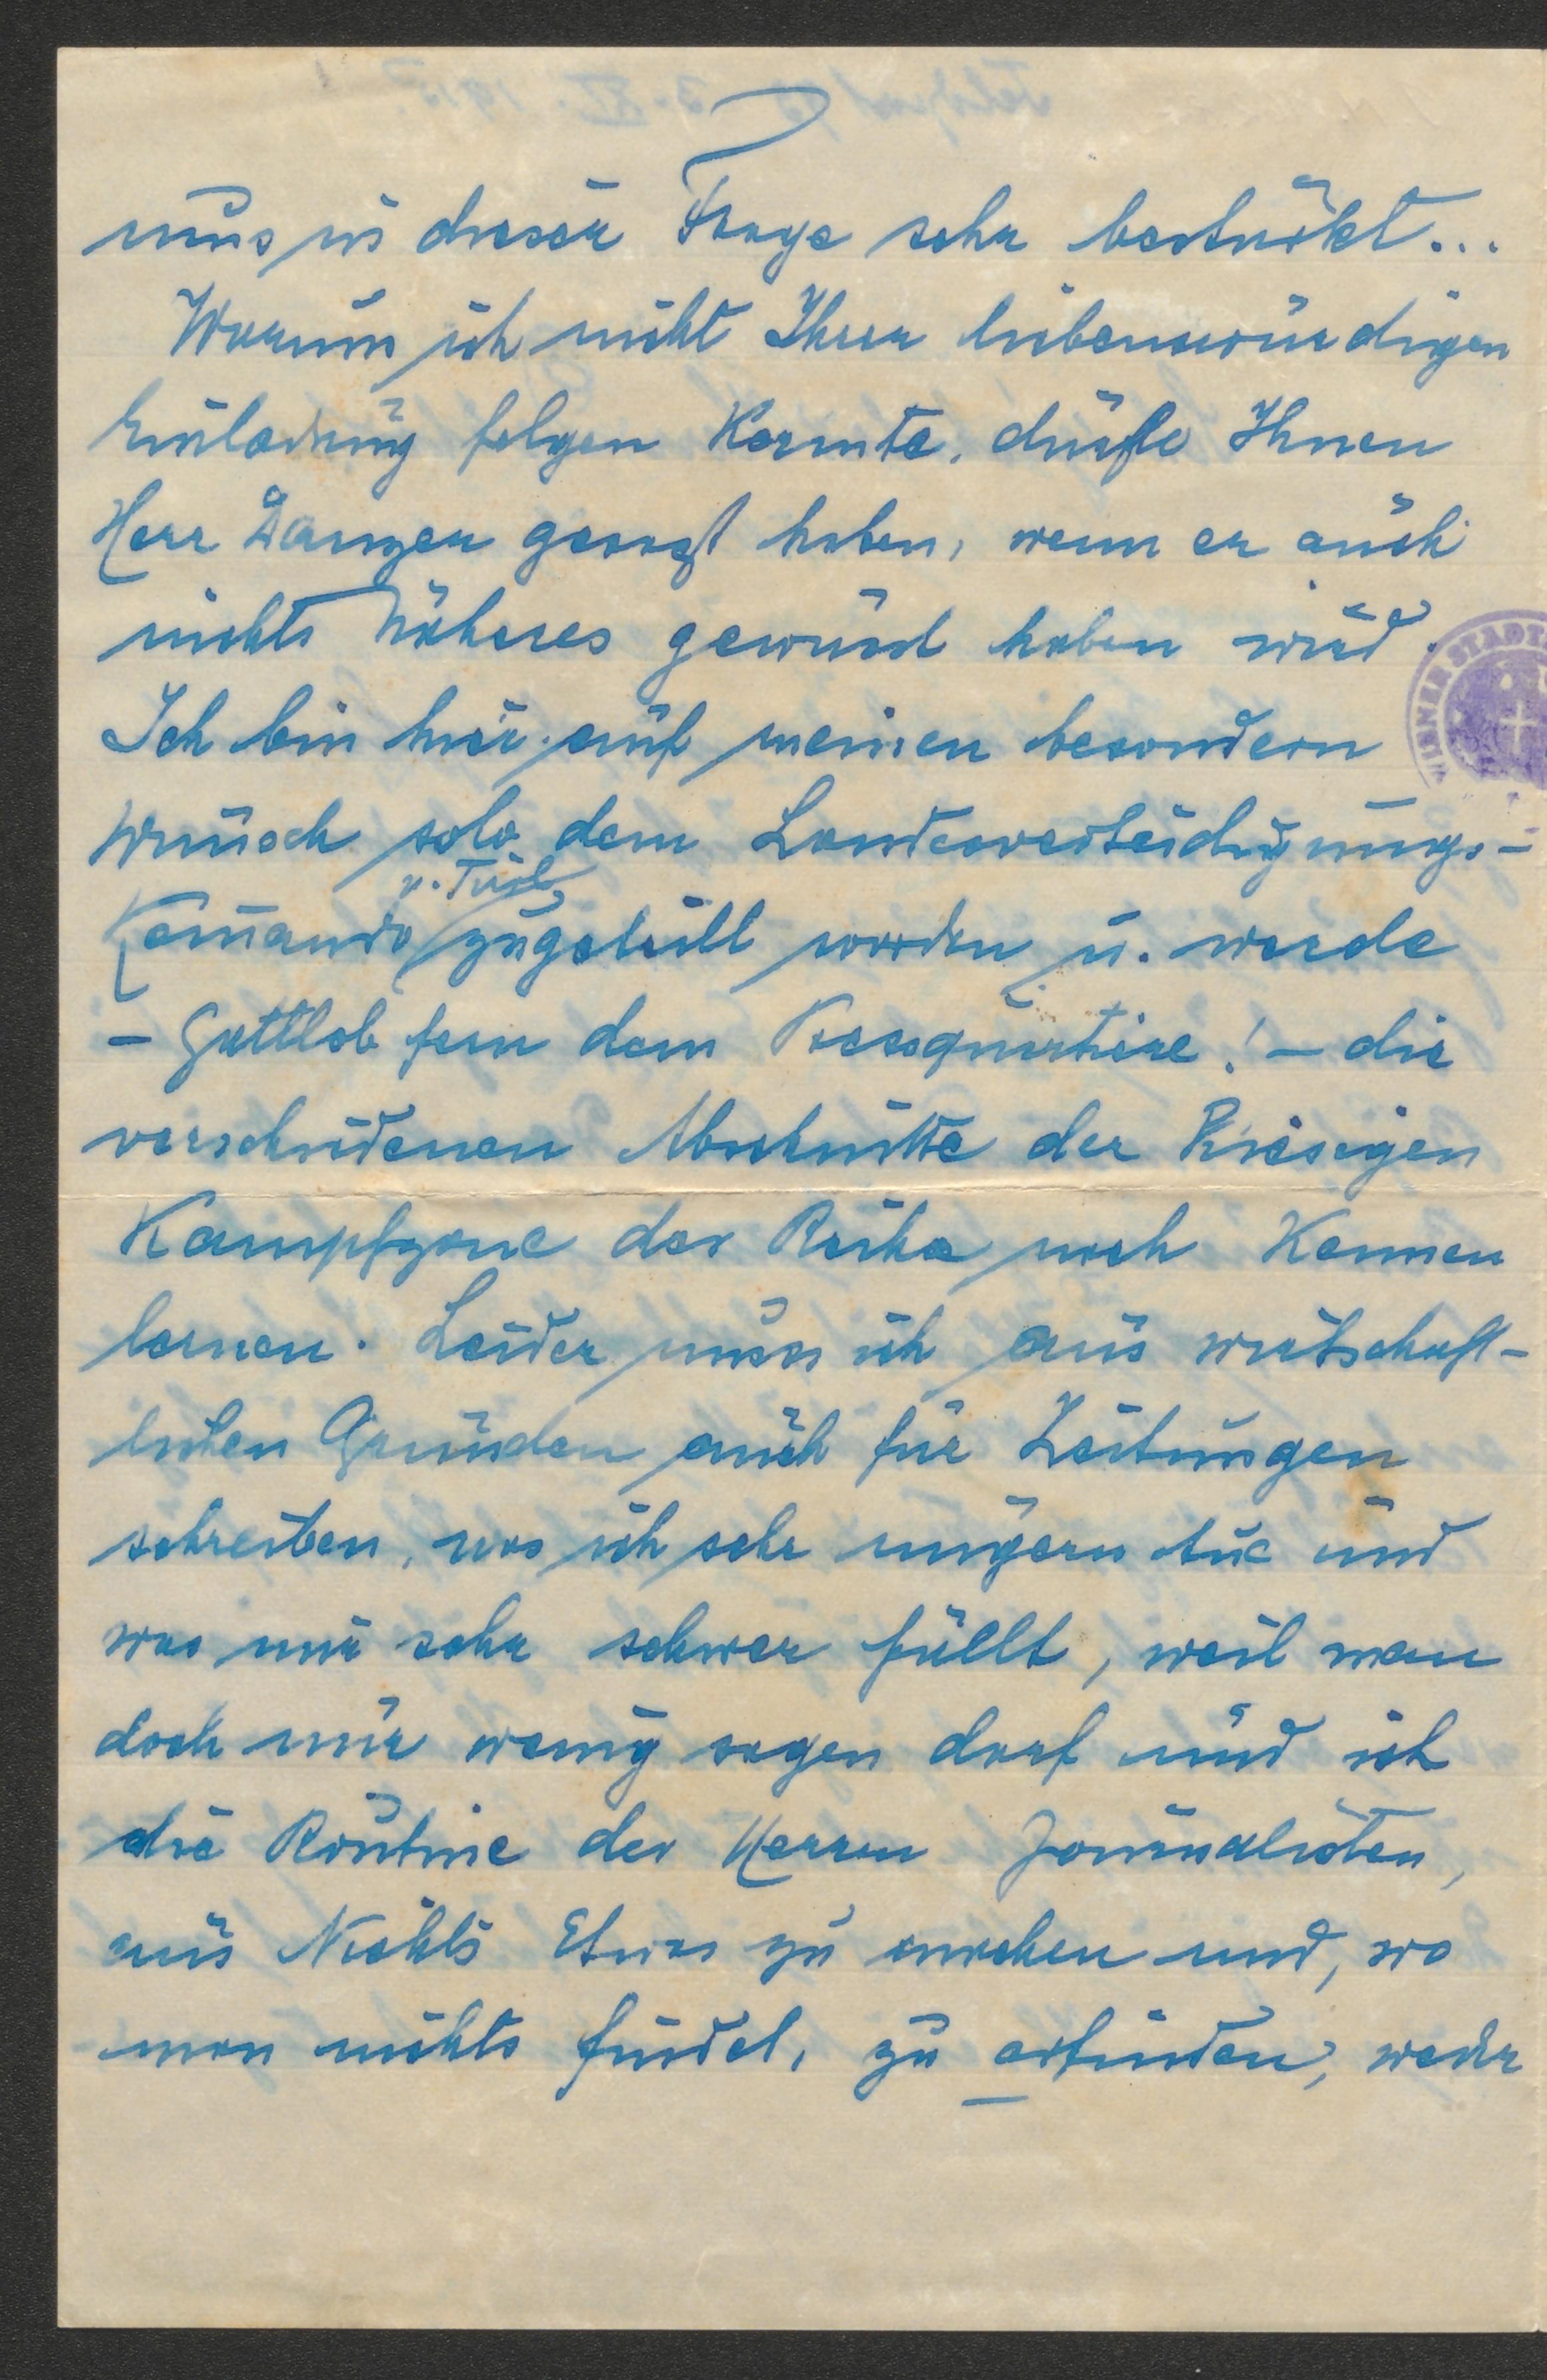 uns in dieser Frage sehr bestärkt...
Warum ich nicht Ihrer liebenswürdigen
Einladung folgen konnte, dürfte Ihnen
Herr Danzer gesagt haben, wenn er auch
nichts Näheres gewusst haben wird.
Ich bin hier auf meinen besondern
Wunsch solo dem Landesverteidigungs-
v. Tirol
Komando zugeteilt worden u. werde
- Gottlob fern dem Pressquartiere! - die
verschiedenen Abschnitte der Riesigen
Kampfzone der Reihe nach Kennen
lernen. Leider muss ich aus wirtschaft-
lichen Gründen auch für Zeitungen
schreiben, was ich sehr ungern tue und
was mir sehr schwer fällt, weil man
doch nur wenig sagen darf und ich
die Routine der Herren Journalisten,
aus Nichts Etwas zu machen und, wo
man nichts findet, zu erfinden, weder
WIENER STADT